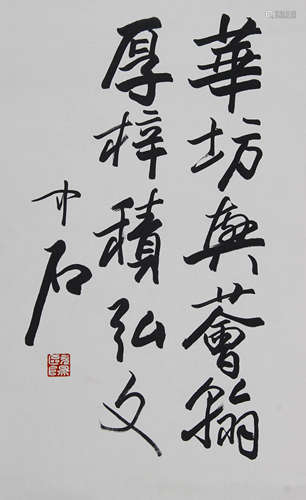 華坊興薈翰
厚梓積弘文
中石